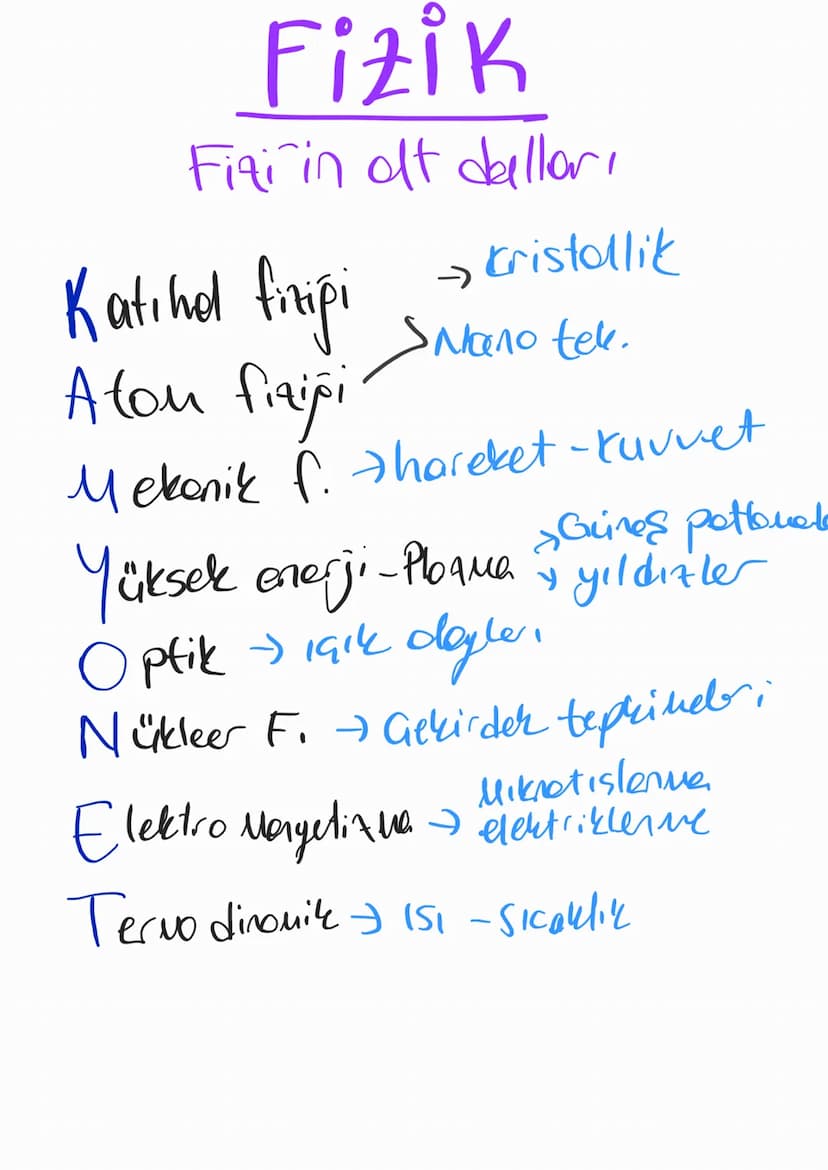 Fizik
Fiziğin alt dalları
Katıhal fiziği → kristallik
Atom fiziği → Nano tek.
Mekanik f. → hareket - kuvvet
Yüksek enerji - Plazma → Güneş patlamala
→ yıldızlar
Optik → ışık olayları
Nükleer F. → Çekirdek tepkimeleri
Elektro Mangetizma → Mıknatıslanma
elektriklenme
Termo dinamik → ısı - sıcaklık